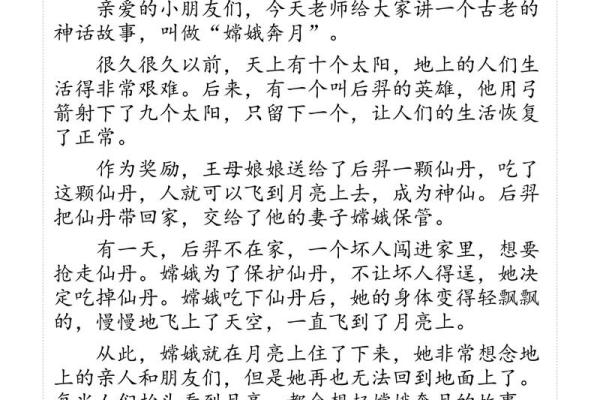 亲爱的小朋友们，今天老师给大家讲一个古老的
神话故事，叫做“嫦娥奔月”。
很久很久以前，天上有十个太阳，地上的人们生
活得非常艰难。后来，有一个叫后羿的英雄，他用弓
箭射下了九个太阳，只留下一个，让人们的生活恢复
了正常。
作为奖励，王母娘娘送给了后羿一颗仙丹，吃了
这颗仙丹，人就可以飞到月亮上去，成为神仙。后羿
把仙丹带回家，交给了他的妻子嫦娥保管。
有一天，后羿不在家，一个坏人闯进家里，想要
抢走仙丹。嫦娥为了保护仙丹，不让坏人得逞，她决
定吃掉仙丹。嫦娥吃下仙丹后，她的身体变得轻飘飘
的，慢慢地飞上了天空，一直飞到了月亮上。
从此，嫦娥就在月亮上住了下来，她非常想念地
上的亲人和朋友们，但是她再也无法回到地面上了。
每当人们抬头看到月亮，都会想起嫦娥奔月的故事，